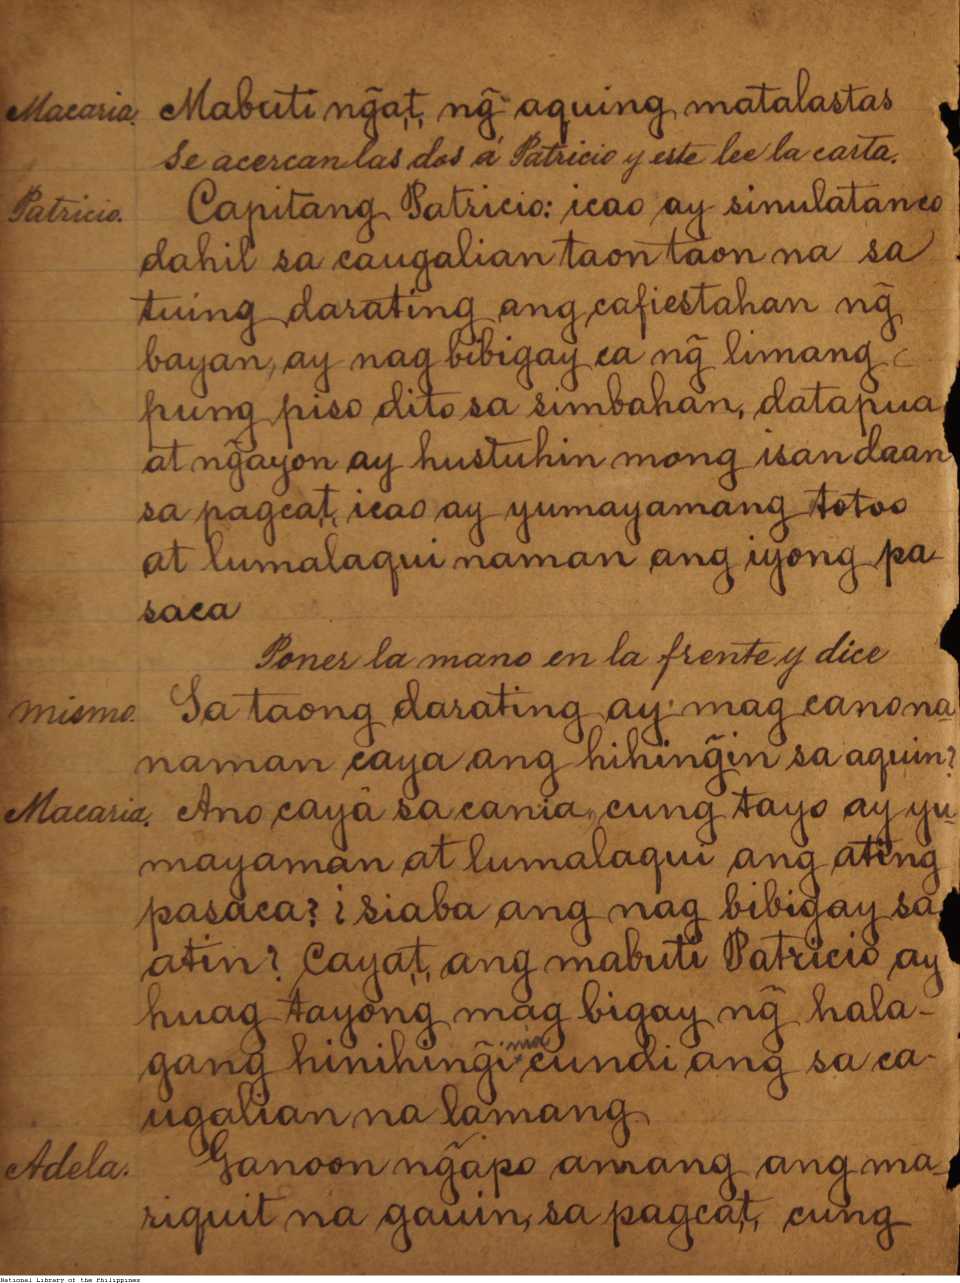 Macaria. Mabuti ng̃at, ng̃ aquing matalastas
Se acercan las dos á Patricio y este lee la carta.
Patricio. Capitang Patricio: icao ay sinulatan co
dahil sa caugalian taon taon na sa
tuing darating ang cafiestahan ng̃
bayan, ay nag bibigay ca ng̃ limang
pung piso dito sa simbahan, datapua
at ng̃ayon ay hustuhin mong isan daan
sa pagcat, icao ay yumayamang totoo
at lumalaqui naman ang iyong pa-
saca
Poner la mano en la frente y dice
Mismo. Sa taong darating ay mag cano na
naman caya ang hihing̃in sa aquin?
Macaria. Ano cayâ sa cania, cung tayo ay yu-
mayaman at lumalaqui ang ating
pasaca? ¿ siaba ang nag bibigay sa
atin? Cayat, ang mabuti Patricio ay
huag tayong mag bigay ng̃ hala-
gang hinihing̃i nia cundi ang sa ca-
ugalian na lamang
Adela. Ganoon ng̃a po amang ang ma-
riquit na gauin, sa pagcat, cung
National Library of the Philippines